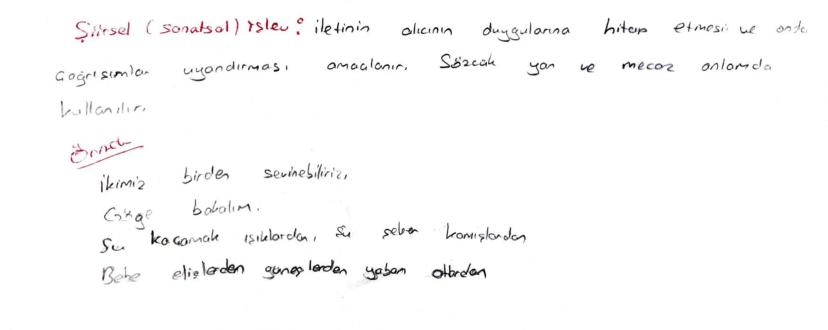 Şiirsel (Sanatsal) İşlev: iletinin alıcının duygularına hitap etmesi ve onda
çağrışımlar uyandırması amaçlanır. Sözcük yan ve mecaz anlamda
kullanılır.
Örnek
İkimiz birden sevinebiliriz,
Göğe bakalım.
Şu kaçamak ışıklardan, şu şeker kamışlardan
Bebe dişlerden güneşlerden yaban otlardan